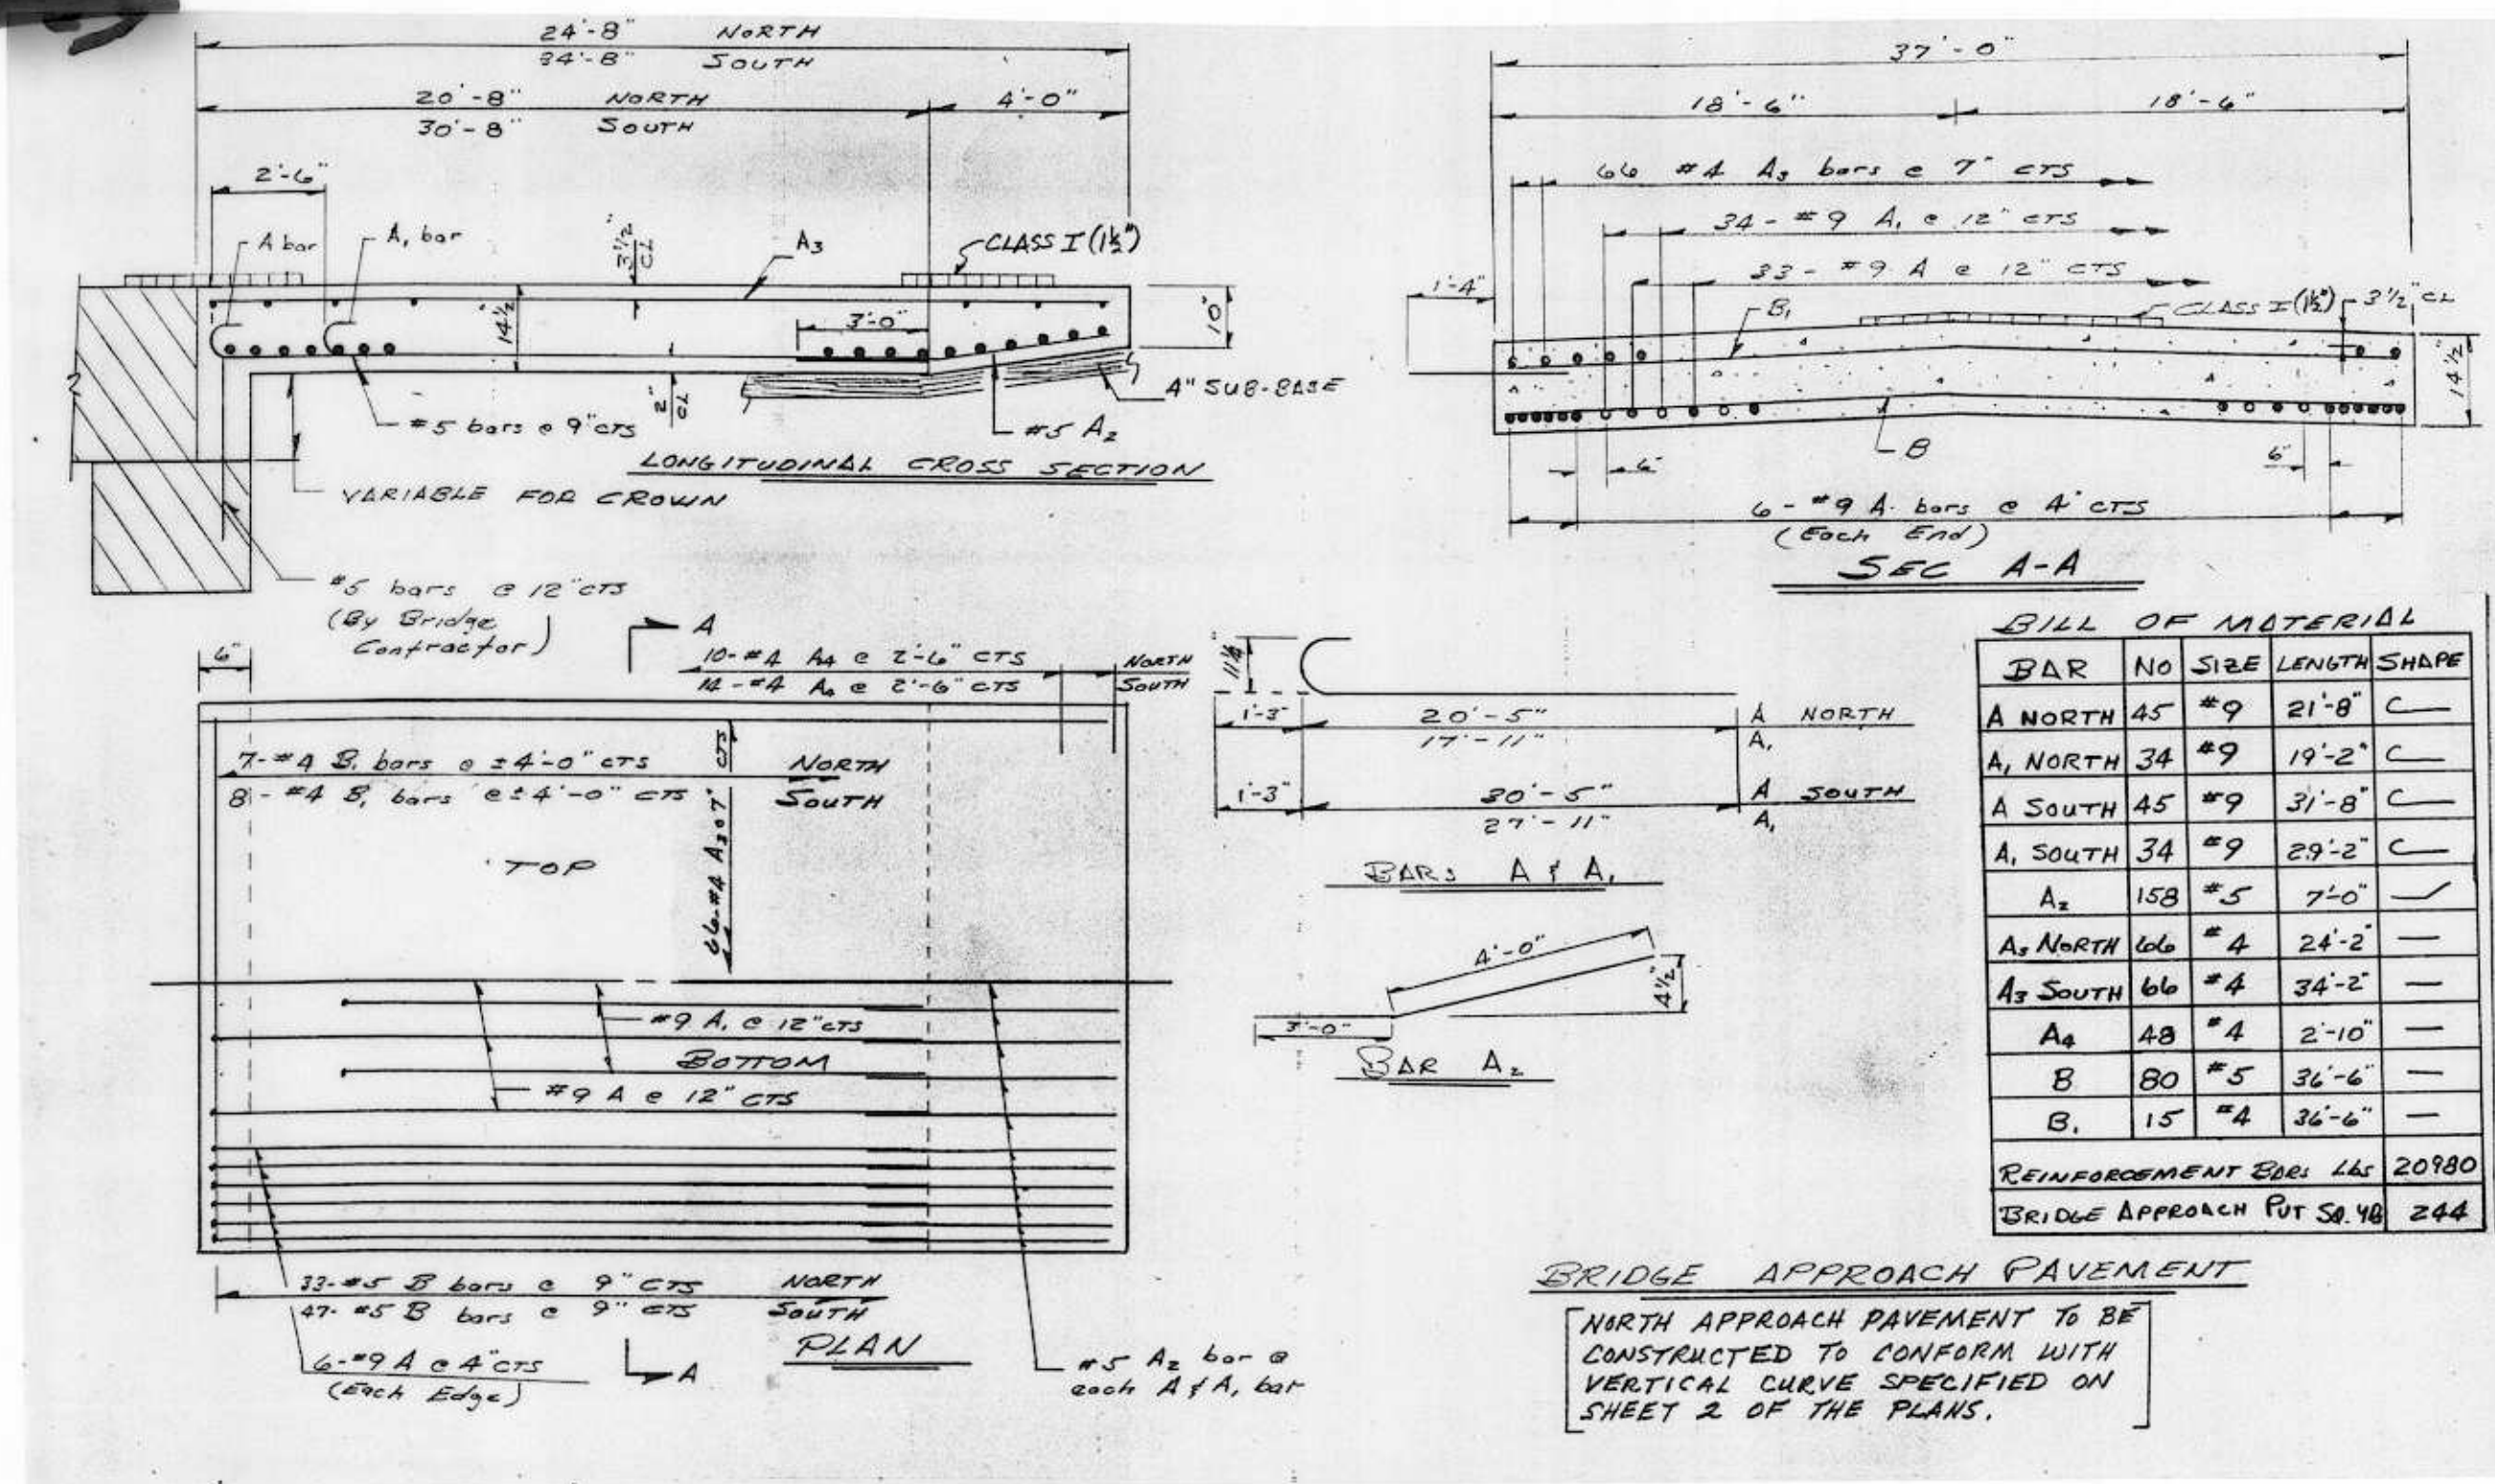 24'-8" NORTH
34'-8" SOUTH
20'-8" NORTH
30'-8" SOUTH
4'-0"
2'-6"
A bar
A, bar
3 1/2" CL
A3
CLASS I (1½")
14½"
3'-0"
10"
2" CL
4" SUB-BASE
#5 bars @ 9" CTS
#5 A2
LONGITUDINAL CROSS SECTION
VARIABLE FOR CROWN
#5 bars @ 12" CTS
(By Bridge
Contractor)
37'-0"
18'-6"
18'-6"
66 #4 A3 bars @ 7" CTS
34-#9 A, @ 12" CTS
33-#9 A @ 12" CTS
1'-4"
B,
CLASS I (1½")
3 1/2" CL
14½"
B
6"
6"
6-#9 A bars @ 4" CTS
(Each End)
SEC A-A
A
6"
10-#4 A4 @ 2'-6" CTS NORTH
14-#4 A4 @ 2'-6" CTS SOUTH
7-#4 B, bars @ ±4'-0" CTS NORTH
8-#4 B, bars @ ±4'-0" CTS SOUTH
66-#4 A3 @ 7" CTS
TOP
#9 A, @ 12" CTS
BOTTOM
#9 A @ 12" CTS
33-#5 B bars @ 9" CTS NORTH
47-#5 B bars @ 9" CTS SOUTH
6-#9 A @ 4" CTS
(Each Edge)
A
PLAN
#5 A2 bar @
each A & A, bar
1'-3" 20'-5" A NORTH
17'-11" A,
1'-3" 30'-5" A SOUTH
27'-11" A,
BARS A & A,
4'-0"
4½"
3'-0"
BAR A2
BILL OF MATERIAL
BAR NO SIZE LENGTH SHAPE
A NORTH 45 #9 21'-8"
A, NORTH 34 #9 19'-2"
A SOUTH 45 #9 31'-8"
A, SOUTH 34 #9 29'-2"
A2 158 #5 7'-0"
A3 NORTH 66 #4 24'-2"
A3 SOUTH 66 #4 34'-2"
A4 48 #4 2'-10"
B 80 #5 36'-6"
B, 15 #4 36'-6"
REINFORCEMENT BARS Lbs 20980
BRIDGE APPROACH PVT SQ. YD 244
BRIDGE APPROACH PAVEMENT
NORTH APPROACH PAVEMENT TO BE
CONSTRUCTED TO CONFORM WITH
VERTICAL CURVE SPECIFIED ON
SHEET 2 OF THE PLANS.